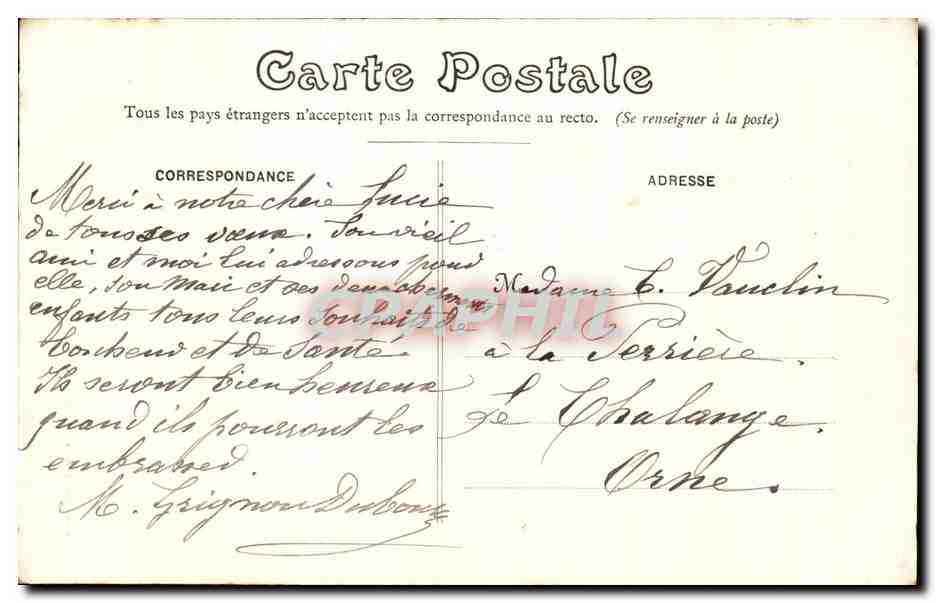 Carte Postale
Tous les pays étrangers n'acceptent pas la correspondance au recto. (Se renseigner à la poste)
CORRESPONDANCE
Merci à notre chère Lucie
de tous ses vœux. Son vieil
ami et moi lui adressons pour
elle, son mari et ses deux charmants
enfants tous leurs souhaits de
bonheur et de Santé.
Ils seront bien heureux
quand ils pourront les
embrasser.
M. Grignon Dubour
ADRESSE
Madame C. Vauclin
à la Perrière.
Le Chalange.
Orne.
CPAPHIL